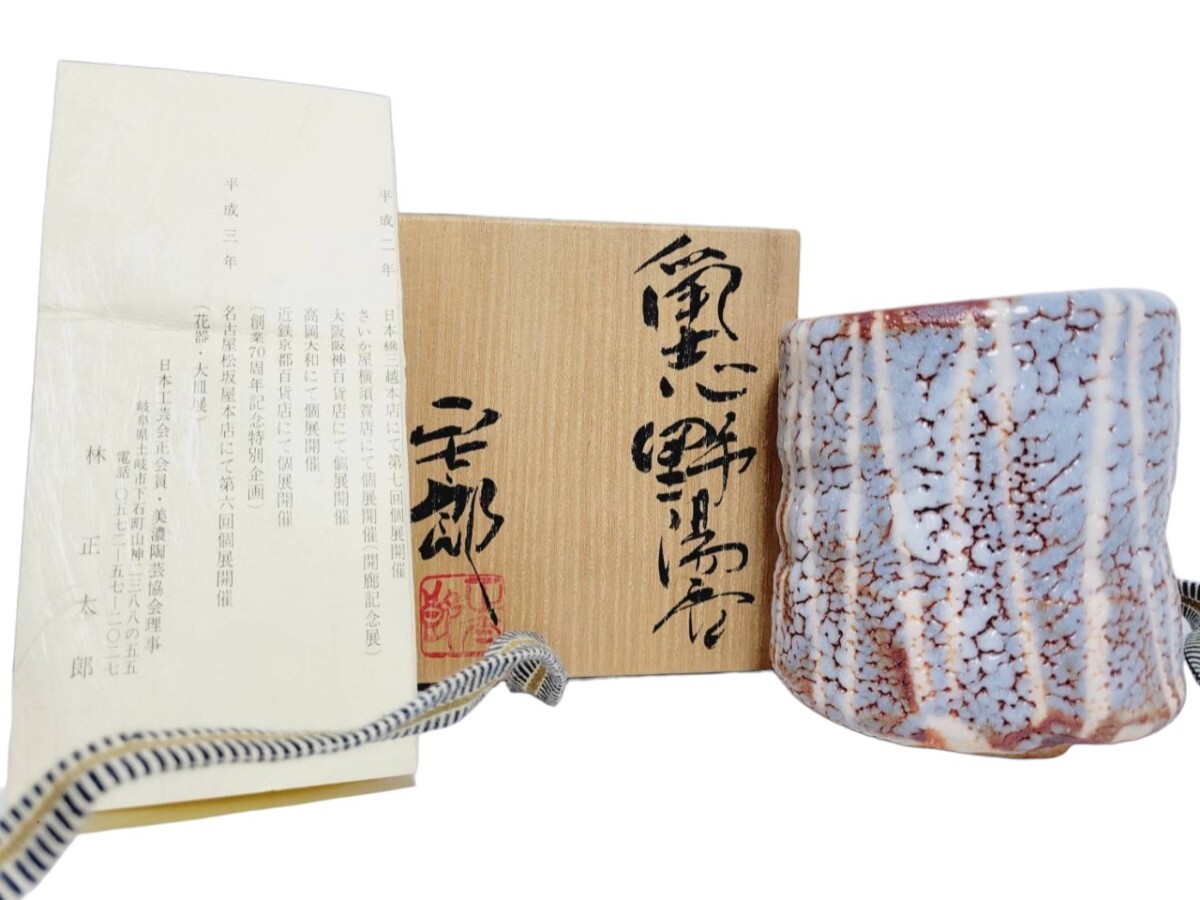 平成二年
日本橋三越本店にて第七回個展開催
さいか屋横須賀店にて個展開催(開廊記念展)
大阪阪神百貨店にて個展開催
高岡大和にて個展開催
近鉄京都百貨店にて個展開催
(創業70周年記念特別企画)
平成三年
名古屋松坂屋本店にて第六回個展開催
(花器・大皿展)
日本工芸会正会員・美濃陶芸協会理事
岐阜県土岐市下石町山神二三八八の五五
電話 〇五七二―五七―二〇二七
林正太郎
志野湯呑
正太郎